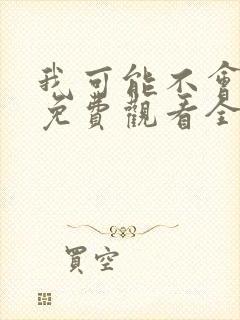 我可能不會
免費觀看全
買空